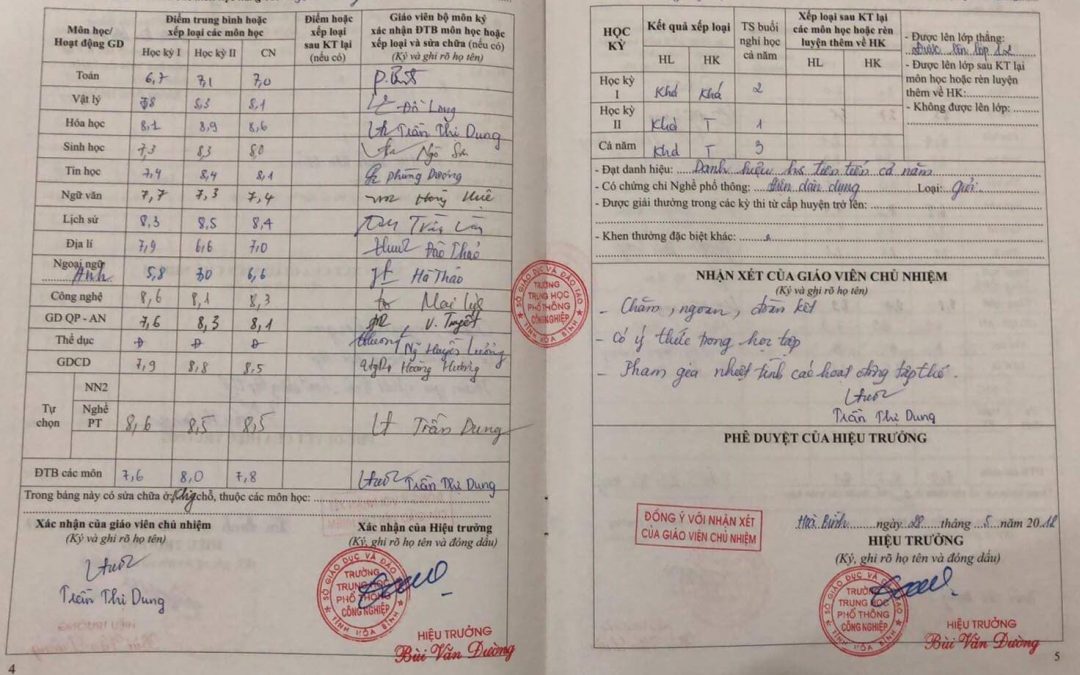 Môn học/ Hoạt động GD
Điểm trung bình hoặc xếp loại các môn học
Điểm hoặc xếp loại sau KT lại (nếu có)
Giáo viên bộ môn ký xác nhận ĐTB môn học hoặc xếp loại và sửa chữa (nếu có)
(Ký và ghi rõ họ tên)
Học kỳ I Học kỳ II CN
Toán 6,7 7,1 7,0
Vật lý 7,8 8,3 8,1 Đỗ Long
Hóa học 8,1 8,9 8,6 Trần Thi Dung
Sinh học 7,3 8,3 8,0 Ngô
Tin học 7,4 8,4 8,1 Phùng Dương
Ngữ văn 7,7 7,3 7,4 Hồng Huê
Lịch sử 8,3 8,5 8,4 Trần
Địa lí 7,9 6,6 7,0 Đào Thảo
Ngoại ngữ Anh 5,8 7,0 6,6 Hà Thảo
Công nghệ 8,6 8,1 8,3 Mai
GD QP - AN 7,6 8,3 8,1 V. Tuyết
Thể dục Đ Đ Đ Ng Huyền Lương
GDCD 7,9 8,8 8,5 Hoàng Hương
Tự chọn
NN2
Nghề PT 8,6 8,5 8,5 Trần Dung
ĐTB các môn 7,6 8,0 7,8 Trần Thi Dung
Trong bảng này có sửa chữa ở: chỗ, thuộc các môn học:
Xác nhận của giáo viên chủ nhiệm
(Ký và ghi rõ họ tên)
Trần Thi Dung
Xác nhận của Hiệu trưởng
(Ký, ghi rõ họ tên và đóng dấu)
SỞ GIÁO DỤC VÀ ĐÀO TẠO
TRƯỜNG
TRUNG HỌC
PHỔ THÔNG
CÔNG NGHIỆP
TỈNH HÒA BÌNH
HIỆU TRƯỞNG
Bùi Văn Dường
4
SỞ GIÁO DỤC VÀ ĐÀO TẠO
TRƯỜNG
TRUNG HỌC
PHỔ THÔNG
CÔNG NGHIỆP
TỈNH HÒA BÌNH
HỌC KỲ
Kết quả xếp loại
TS buổi nghỉ học cả năm
Xếp loại sau KT lại các môn học hoặc rèn luyện thêm về HK
HL HK HL HK
Học kỳ I Khá Khá 2
Học kỳ II Khá T 1
Cả năm Khá T 3
- Được lên lớp thẳng:
Được lên lớp 12
- Được lên lớp sau KT lại
môn học hoặc rèn luyện
thêm về HK:
- Không được lên lớp:
- Đạt danh hiệu: Danh hiệu hs tiên tiến cả năm
- Có chứng chỉ Nghề phổ thông: Điện dân dụng Loại: giỏi
- Được giải thưởng trong các kỳ thi từ cấp huyện trở lên:
- Khen thưởng đặc biệt khác:
NHẬN XÉT CỦA GIÁO VIÊN CHỦ NHIỆM
(Ký và ghi rõ họ tên)
- Chăm, ngoan, đoàn kết
- Có ý thức trong học tập
- Tham gia nhiệt tình các hoạt động tập thể.
Trần Thi Dung
PHÊ DUYỆT CỦA HIỆU TRƯỞNG
ĐỒNG Ý VỚI NHẬN XÉT
CỦA GIÁO VIÊN CHỦ NHIỆM
Hoà Bình ngày 28 tháng 5 năm 2012
HIỆU TRƯỞNG
(Ký, ghi rõ họ tên và đóng dấu)
SỞ GIÁO DỤC VÀ ĐÀO TẠO
TRƯỜNG
TRUNG HỌC
PHỔ THÔNG
CÔNG NGHIỆP
TỈNH HÒA BÌNH
HIỆU TRƯỞNG
Bùi Văn Dường
5